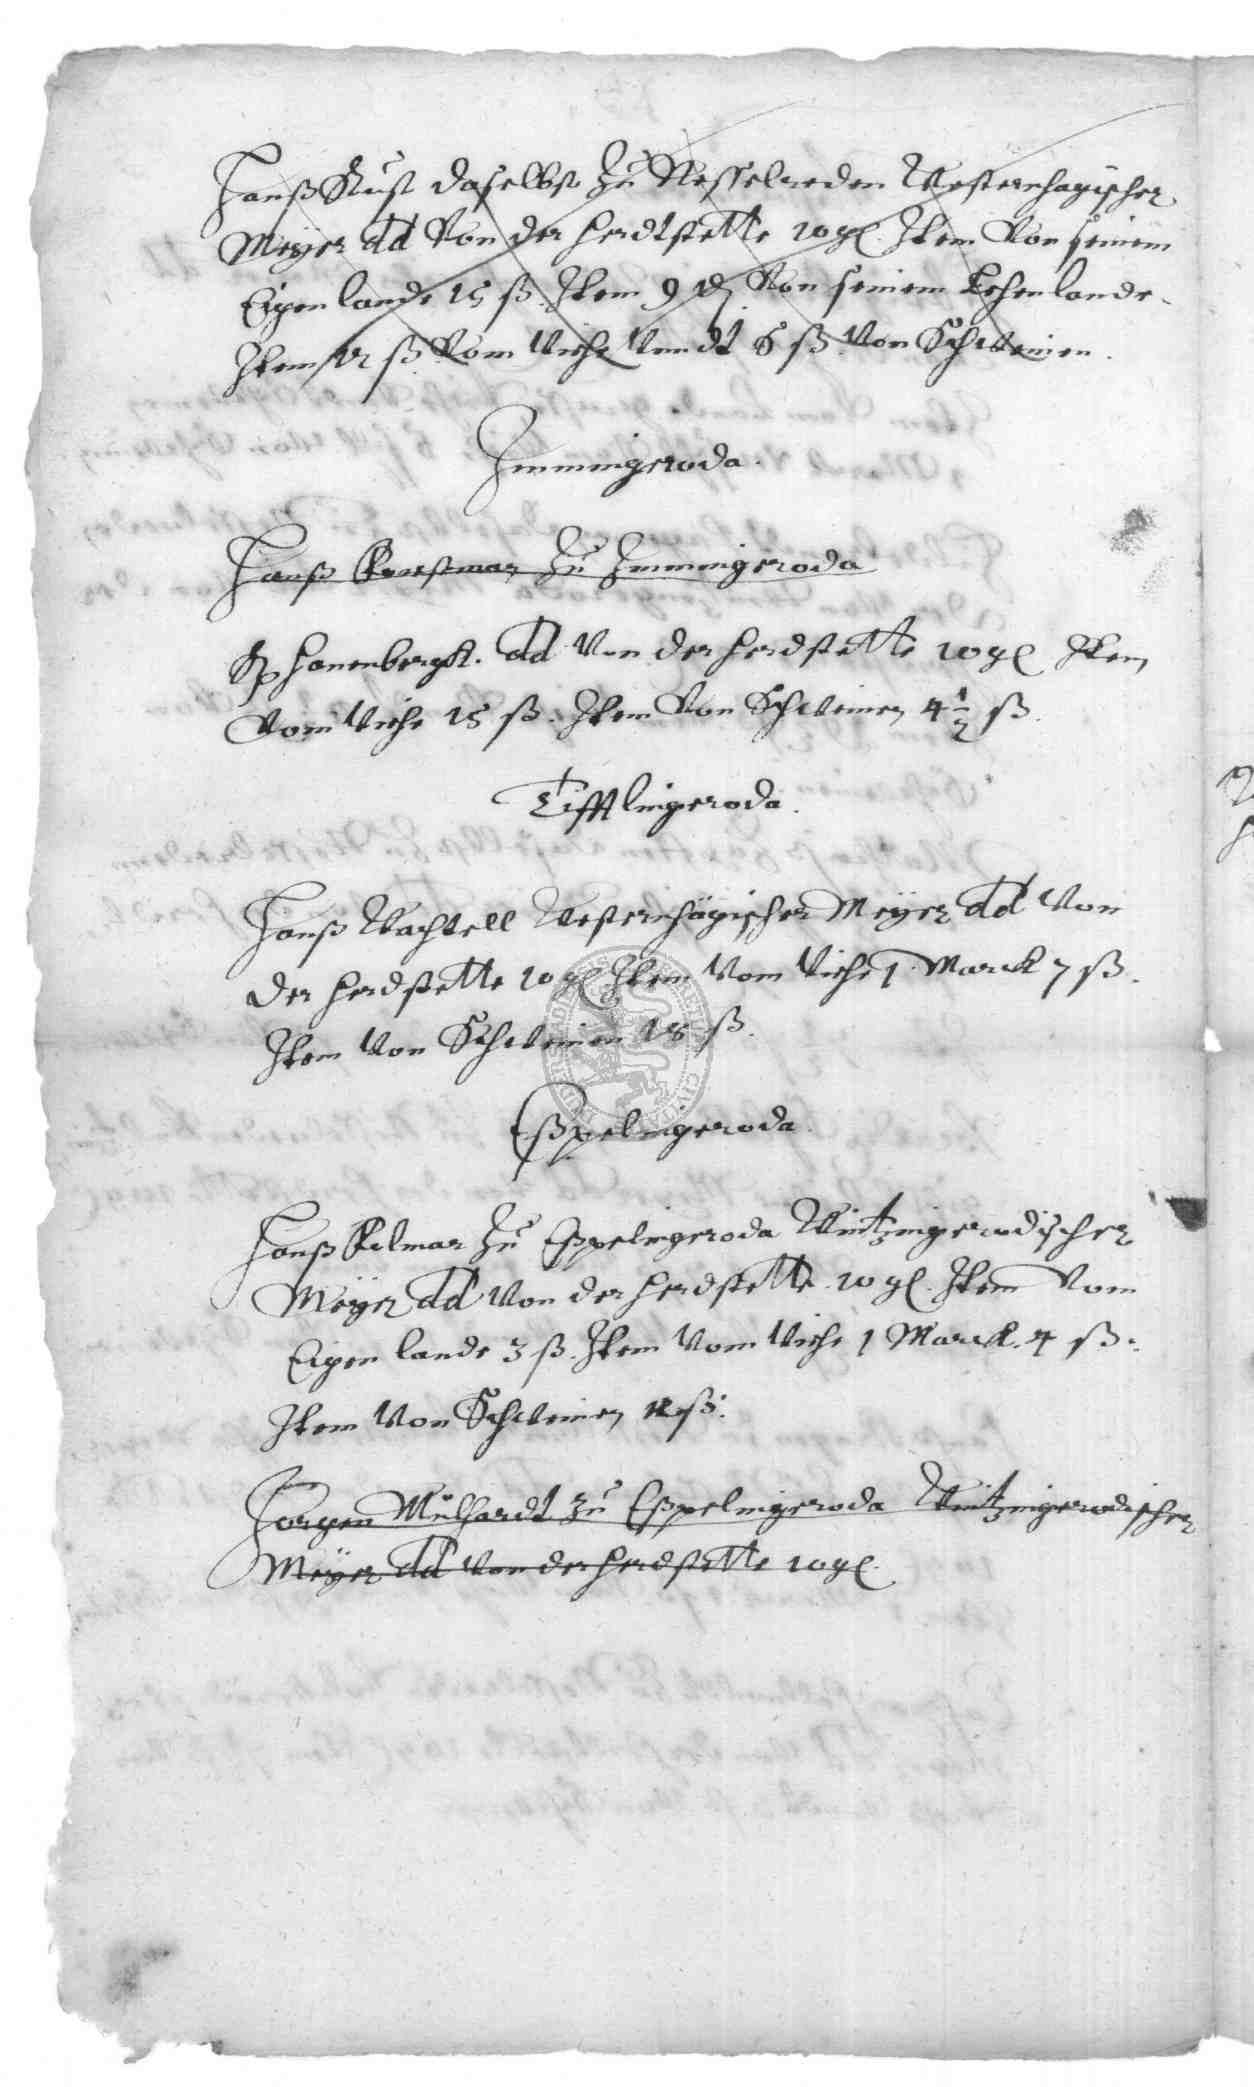 Hanß Kust daselbst zu Nesselreden Westernhagischer
Meyer dd Von der herdtstette 10 gl. Item Von seinem
Eigen lande 15 ß. Item 9 ₰ Von seinem Lehen lande.
Item 12 ß Vom Viehe Vnndt 6 ß Von Schweinen.
Immingeroda.
Hanß zu Immingeroda
hanenbergk. dd Von der herdstette 10 gl Item
Vom Viehe 15 ß. Item Von Schweinen 4½ ß.
Tifftlingeroda.
Hanß Wachtell Westernhägischer Meyer dd Von
der herdstette 10 gl Item Vom Viehe 1 Marck 7 ß.
Item Von Schweinen 18 ß.
Eßpelingeroda.
Hanß zu Eßpelingeroda Wintzingerodischer
Meyer dd Von der herdstette 10 gl. Item Vom
Eigen lande 3 ß. Item Vom Viehe 1 Marck. 4 ß.
Item Von Schweinen 12 ß.
Jorgen Mülhardt zu Eßpelingeroda Wintzingerodischer
Meyer dd Von der herdstette 10 gl.